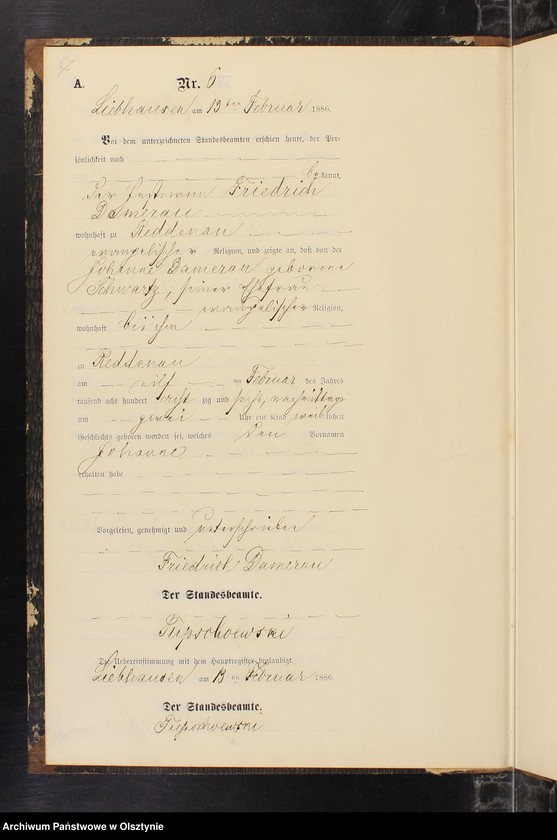 A.
Nr. 6
Liebhausen am 13ten Februar 1886.
Vor dem unterzeichneten Standesbeamten erschien heute, der Per-
sönlichkeit nach
bekannt,
der Friedrich
Damerau
wohnhaft zu Reddenau
evangelischer Religion, und zeigte an, daß von der
Johanne Damerau geborene
Schwartz, seiner Ehefrau
evangelischer Religion,
wohnhaft bei ihm
zu Reddenau
am elf ten Februar des Jahres
tausend acht hundert acht zig und sechs, nachmittags
um zwei Uhr ein Kind weib lichen
Geschlechts geboren worden sei, welches den Vornamen
Johanne
erhalten habe
Vorgelesen, genehmigt und unterschrieben
Friedrich Damerau
Der Standesbeamte.
Die Uebereinstimmung mit dem Hauptregister beglaubigt.
Liebhausen am 13 ten Februar 1886.
Der Standesbeamte.
Archiwum Państwowe w Olsztynie